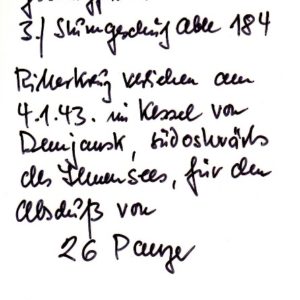 3.) Sturmgeschütz Abt. 184
Ritterkreuz verliehen am
4.1.43. im Kessel von
Demjansk, südostwärts
des Ilmensees, für den
Abschuß von
26 Panzer